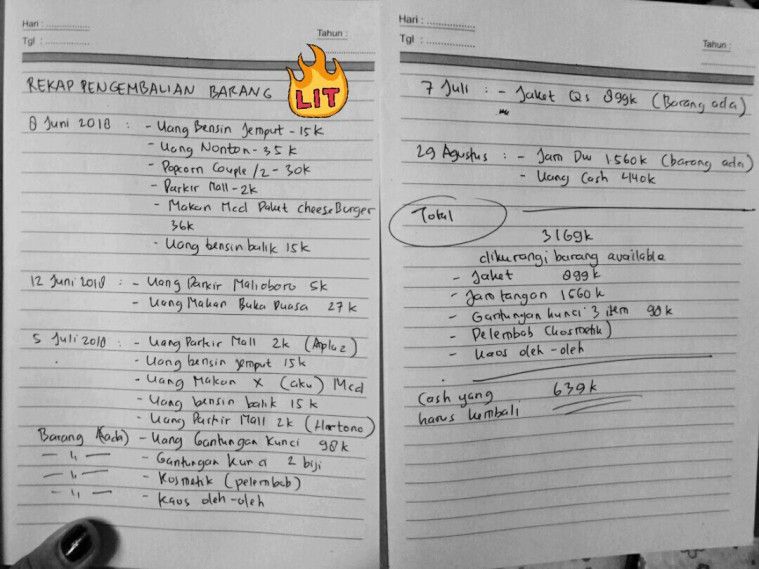 Hari : ................
Tgl : ................
Tahun :
REKAP PENGEMBALIAN BARANG
LIT
8 Juni 2018 : - Uang Bensin Jemput - 15k
- Uang Nonton - 35k
- Popcorn Couple /2 - 30k
- Parkir Mall - 2k
- Makan Mcd Paket cheese Burger
36k
- Uang bensin balik 15k
12 Juni 2018 : - Uang Parkir Malioboro 5k
- Uang Makan Buka Puasa 27k
5 Juli 2018 : - Uang Parkir Mall 2k (Aplaz)
- Uang bensin jemput 15k
- Uang Makan X (aku) Mcd
- Uang bensin balik 15k
- Uang Parkir Mall 2k (Hartono)
Barang (ada) - Uang Gantungan Kunci 98k
— 4 — - Gantungan Kunci 2 biji
— 4 — - Kosmetik (pelembab)
— 4 — - Kaos oleh-oleh
Hari : ................
Tgl : ................
Tahun :
7 Juli : - Jaket Qs 899k (Barang ada)
29 Agustus : - Jam Dw 1560k (barang ada)
- Uang Cash 440k
Total
3169k
dikurangi barang available
- Jaket 899k
- Jam tangan 1560k
- Gantungan kunci 3 item 98k
- Pelembab (kosmetik)
- kaos oleh-oleh
Cash yang 639k
harus kembali